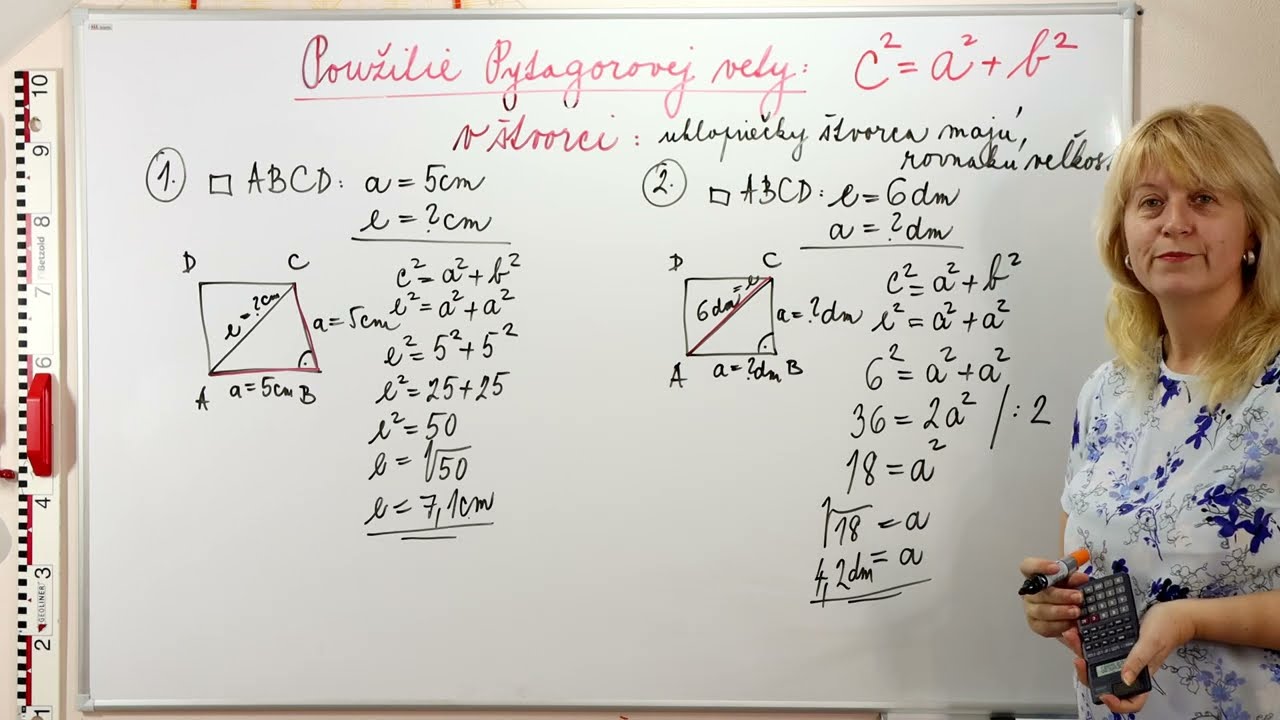 Použitie Pytagorovej vety: c² = a² + b²
v štvorci: uhlopriečky štvorca majú
rovnakú veľkos
1. □ ABCD: a = 5cm
e = ?cm
D C
e = ?cm
a = 5cm
A a = 5cm B
c² = a² + b²
e² = a² + a²
e² = 5² + 5²
e² = 25 + 25
e² = 50
e = √50
e = 7,1cm
2. □ ABCD: e = 6dm
a = ?dm
D C
6dm = e
a = ?dm
A a = ?dm B
c² = a² + b²
e² = a² + a²
6² = a² + a²
36 = 2a² / : 2
18 = a²
√18 = a
4,2dm = a
10
9
8
Betzold
7
6
4
3
GEOLINER
2
1